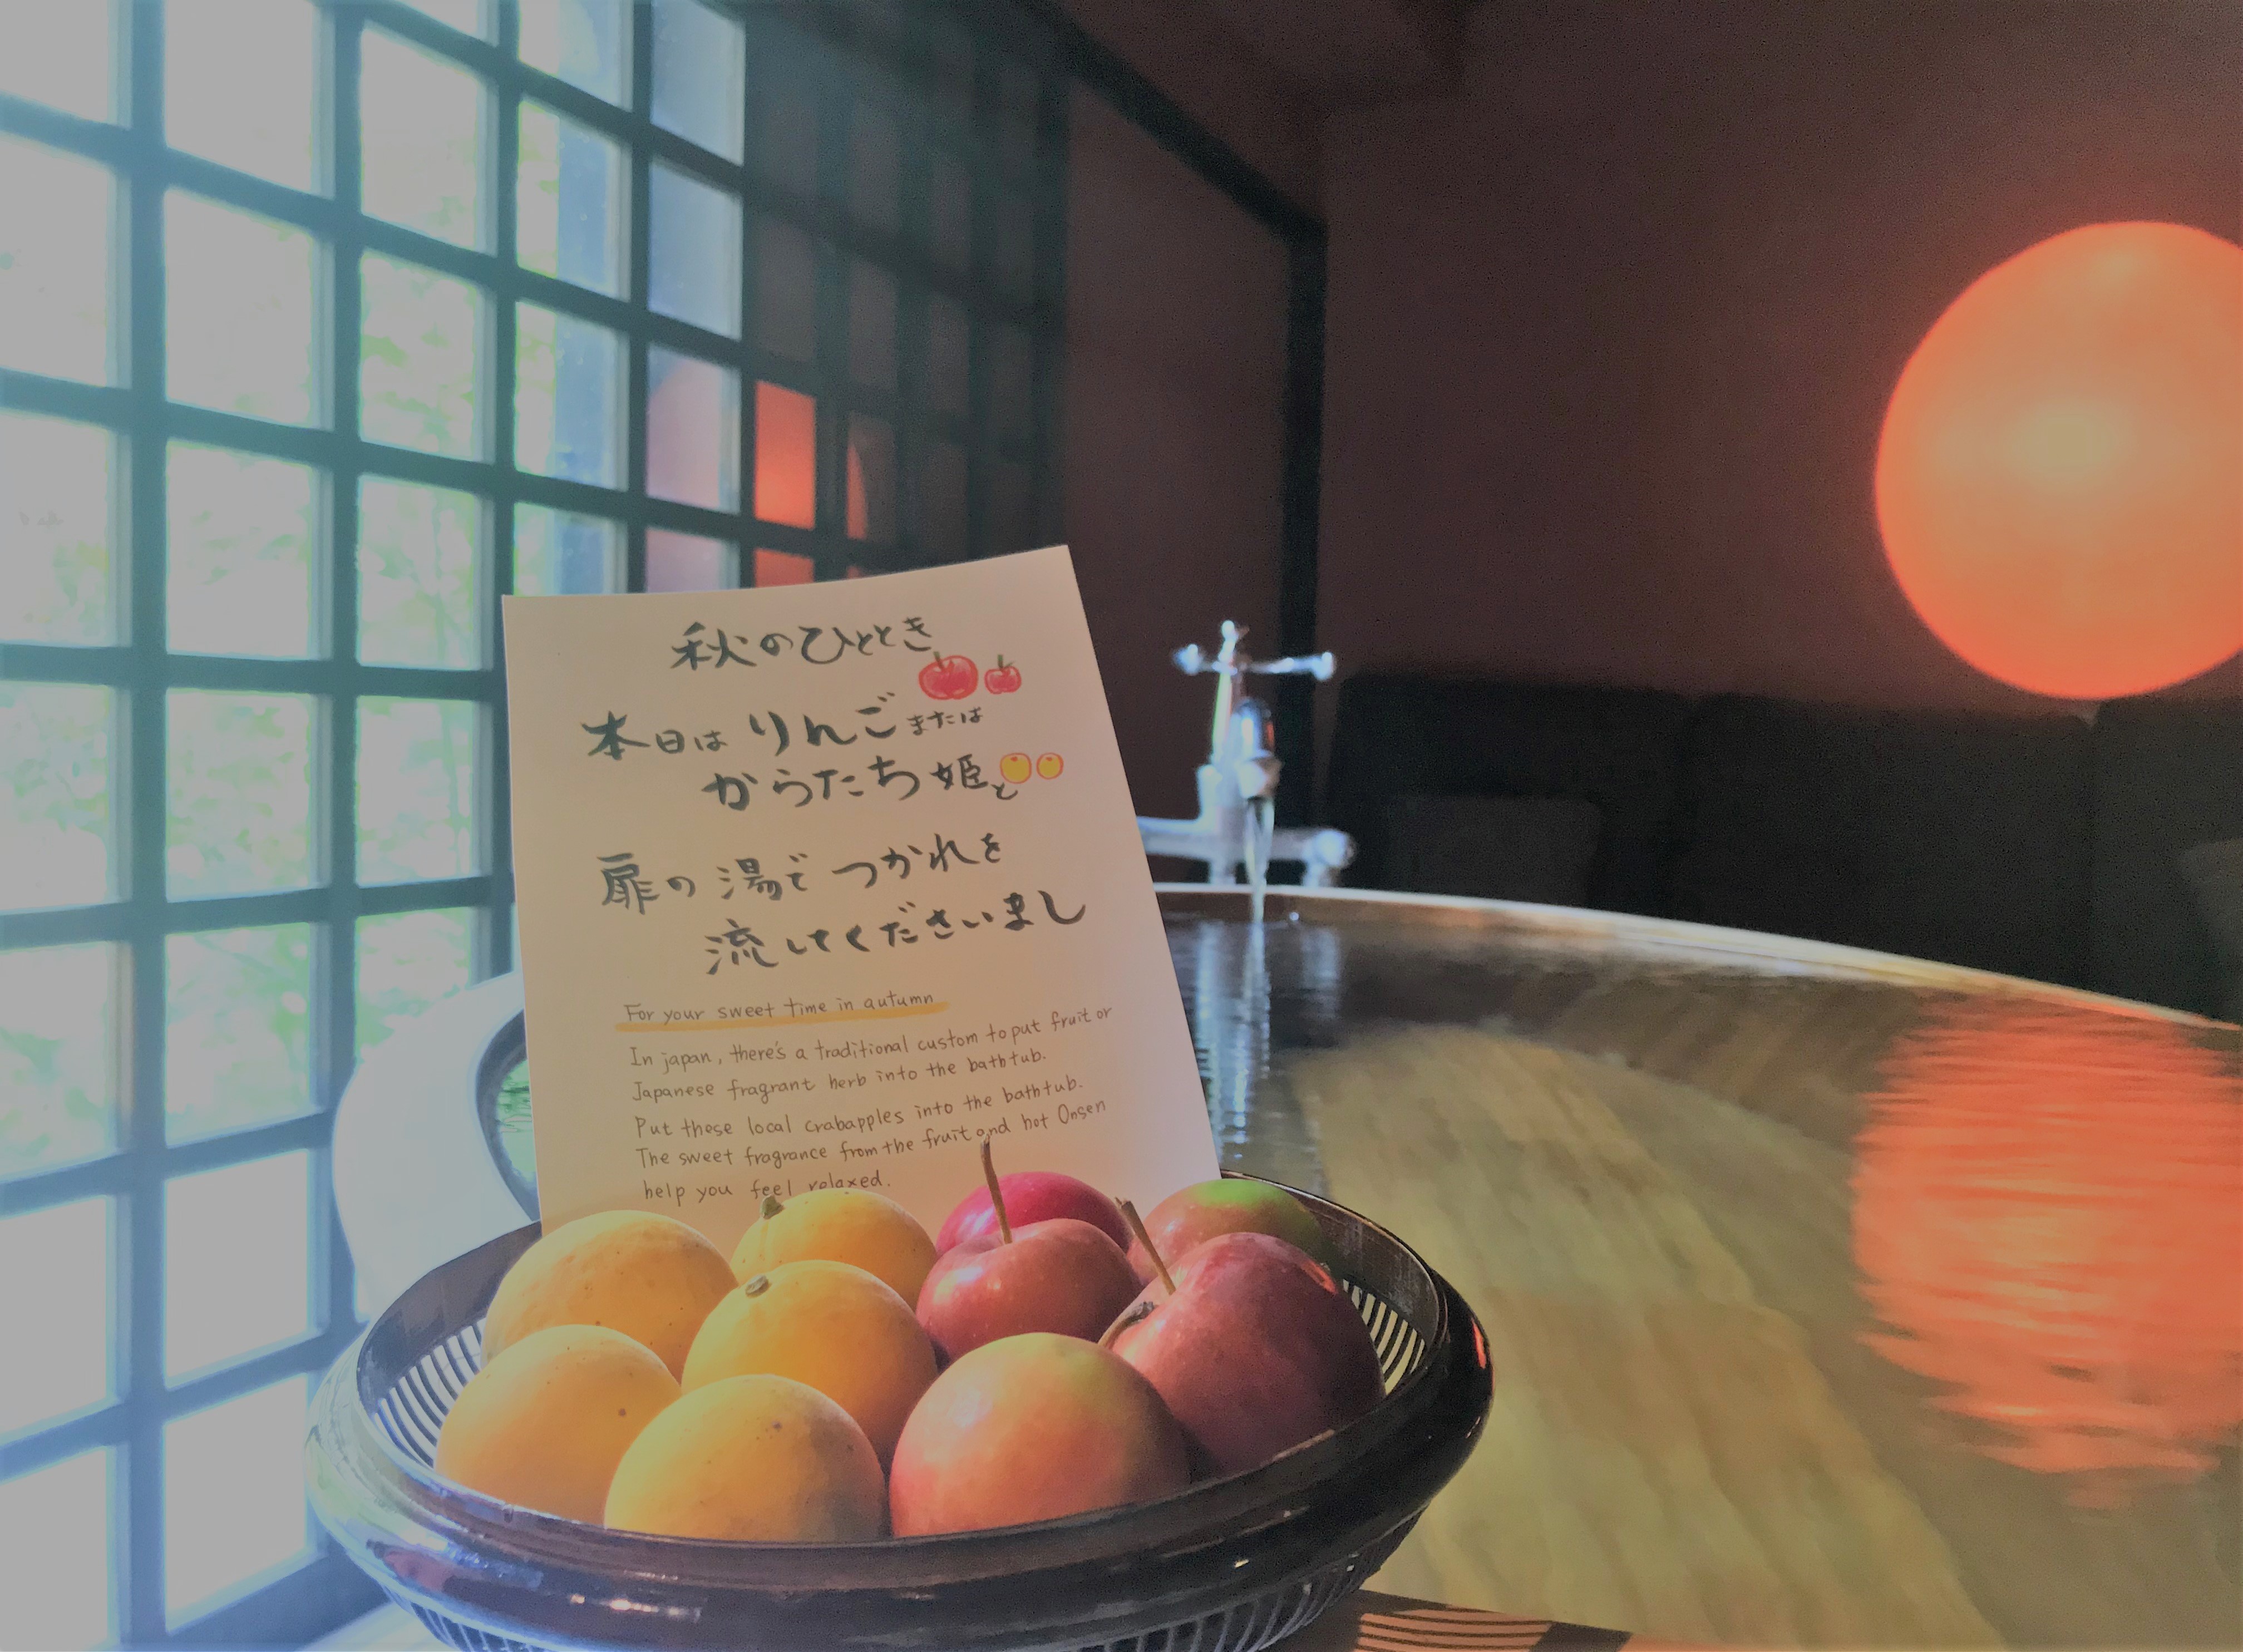 秋のひととき
本日は りんごまたは
からたち姫と
扉の湯で つかれを
流してくださいまし
For your sweet time in autumn
In japan, there's a traditional custom to put fruit or
Japanese fragrant herb into the bathtub.
Put these local crabapples into the bathtub.
The sweet fragrance from the fruit and hot Onsen
help you feel relaxed.